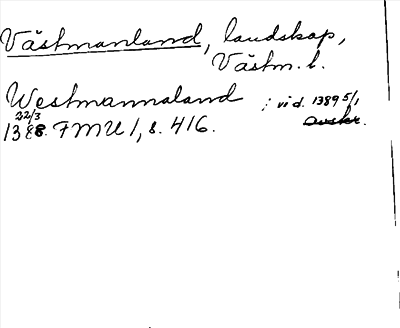 Västmanland, landskap,
Västm. l.
Westmannaland ; vid. 1389 5/1
22/3 avskr.
1388. FMU 1, s. 416.